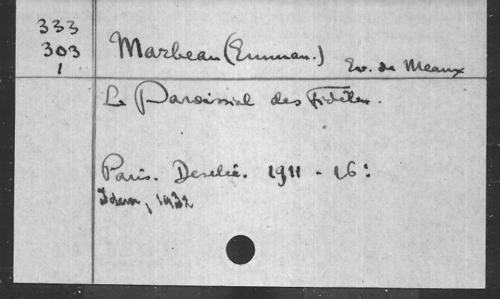 333
303
1
Marbeau (Emman.) Ev. de Meaux
Le Paroissial des Fidèles.
Paris. Desclée. 1911 - 16:
Idem, 1932